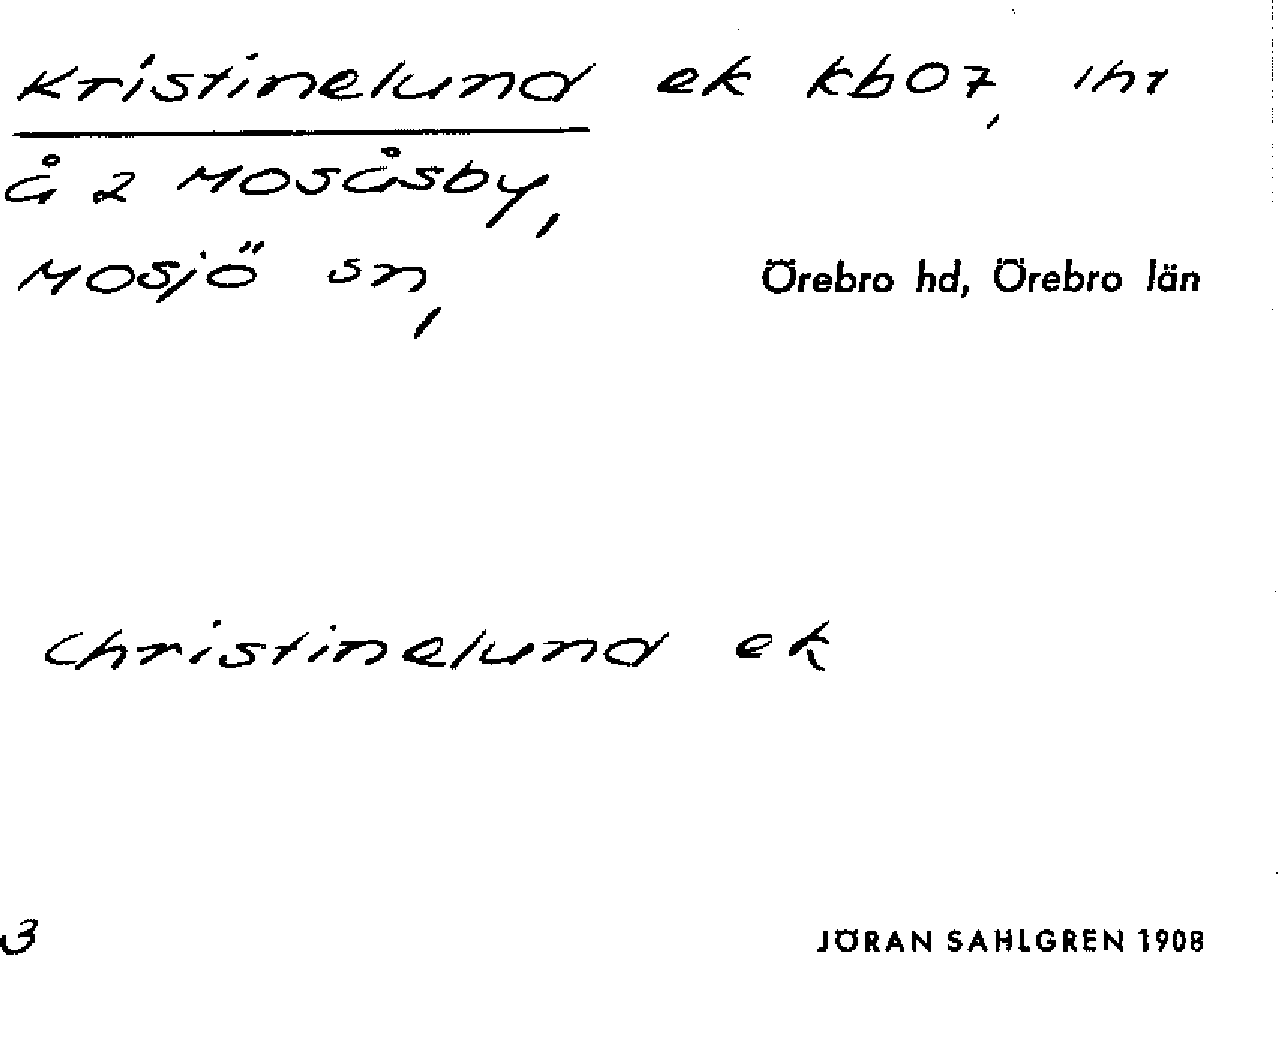 Kristinelund ek kb07, 1ht
å 2 Mosåsby,
Mosjö sn,
Örebro hd, Örebro län
Christinelund ek
3
JÖRAN SAHLGREN 1908